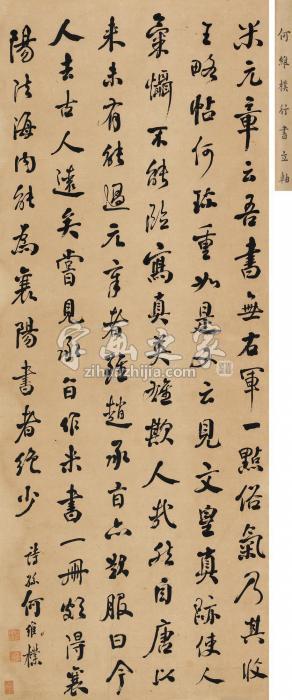 何維樸行書立軸
米元章云吾書無右軍一點俗氣乃其收
王略帖何珍重如是又云見文皇真跡使人
氣懾不能臨寫真英雄欺人哉然自唐以
来未有能過元章者雖趙承旨亦歎服曰今
人去古人遠矣嘗見承旨作米書一冊頗得襄
陽法海内能爲襄陽書者絶少
詩孫何維樸
字画之家
zihuazhijia.com